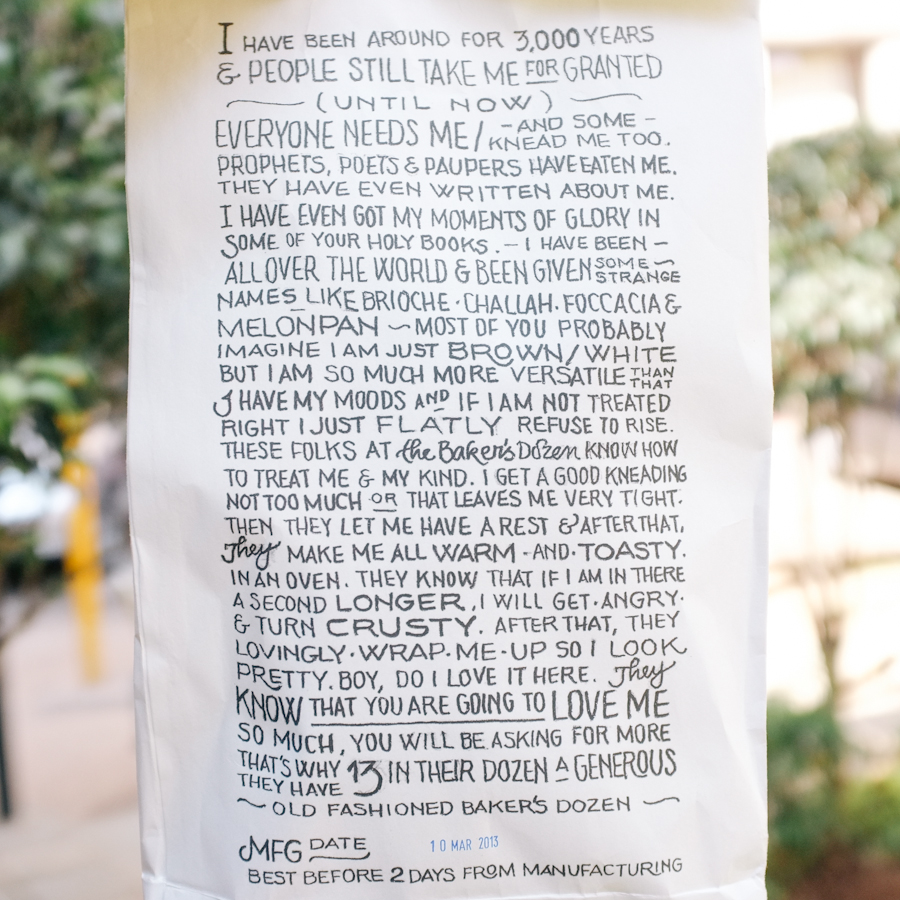 I HAVE BEEN AROUND FOR 3,000 YEARS
& PEOPLE STILL TAKE ME FOR GRANTED
(UNTIL NOW)
EVERYONE NEEDS ME / - AND SOME - KNEAD ME TOO.
PROPHETS, POETS & PAUPERS HAVE EATEN ME.
THEY HAVE EVEN WRITTEN ABOUT ME.
I HAVE EVEN GOT MY MOMENTS OF GLORY IN
SOME OF YOUR HOLY BOOKS. - I HAVE BEEN -
ALL OVER THE WORLD & BEEN GIVEN SOME STRANGE
NAMES LIKE BRIOCHE · CHALLAH · FOCCACIA &
MELONPAN ~ MOST OF YOU PROBABLY
IMAGINE I AM JUST BROWN / WHITE
BUT I AM SO MUCH MORE VERSATILE THAN THAT
I HAVE MY MOODS AND IF I AM NOT TREATED
RIGHT I JUST FLATLY REFUSE TO RISE.
THESE FOLKS AT the Baker's Dozen KNOW HOW
TO TREAT ME & MY KIND. I GET A GOOD KNEADING
NOT TOO MUCH OR THAT LEAVES ME VERY TIGHT.
THEN THEY LET ME HAVE A REST & AFTER THAT,
They MAKE ME ALL WARM · AND · TOASTY.
IN AN OVEN. THEY KNOW THAT IF I AM IN THERE
A SECOND LONGER, I WILL GET · ANGRY ·
& TURN CRUSTY. AFTER THAT, THEY
LOVINGLY · WRAP · ME · UP SO I LOOK
PRETTY. BOY, DO I LOVE IT HERE. They
KNOW THAT YOU ARE GOING TO LOVE ME
SO MUCH, YOU WILL BE ASKING FOR MORE
THAT'S WHY THEY HAVE 13 IN THEIR DOZEN A GENEROUS
~ OLD FASHIONED BAKER'S DOZEN ~
MFG DATE 10 MAR 2013
BEST BEFORE 2 DAYS FROM MANUFACTURING